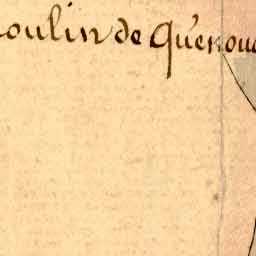 oulin de Quenou